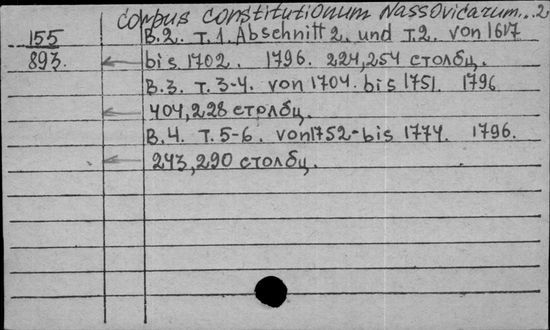 Corpus constitutionum Nassovicarum...2
155 B.2. т.1. Abschnitt 2. und т.2. von 1617
893. bis 1702. 1796. 224,254 столбц.
B.3. т.3-4. von 1704. bis 1751. 1796
404,228 столбц.
B.4. т.5-6. von 1752-bis 1774. 1796.
243,290 столбц.